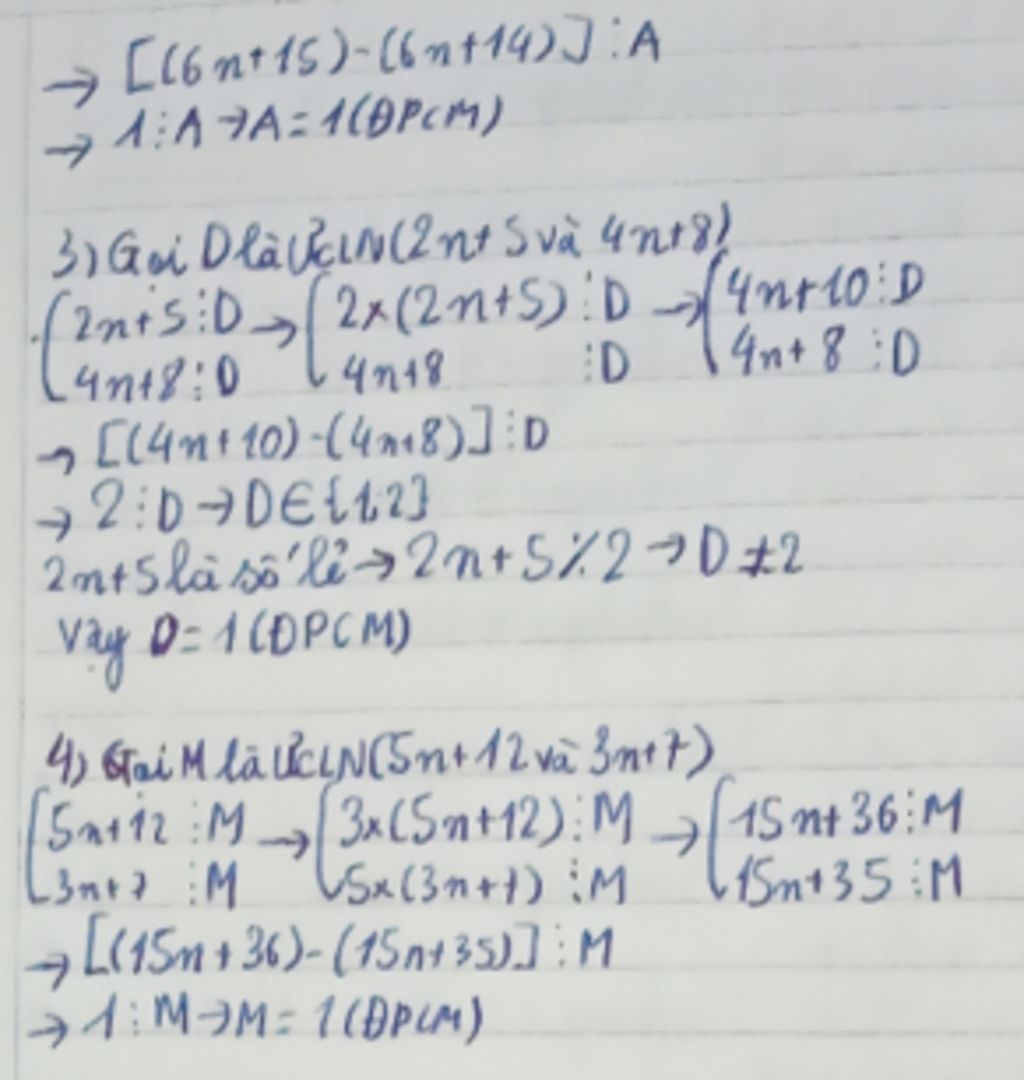 → [(6n+15)-(6n+14)]⋮A
→ 1⋮A→A=1(ĐPCM)
3) Gọi D là ƯCLN(2n+5 và 4n+8)
2n+5⋮D → 2x(2n+5)⋮D → 4n+10⋮D
4n+8⋮D 4n+8 ⋮D 4n+8⋮D
→ [(4n+10)-(4n+8)]⋮D
→ 2⋮D→D∈{1;2}
2n+5 là số lẻ→2n+5⋮̸2→D≠2
Vậy D=1(ĐPCM)
4) Gọi M là ƯCLN(5n+12 và 3n+7)
5n+12⋮M → 3x(5n+12)⋮M → 15n+36⋮M
3n+7⋮M 5x(3n+7)⋮M 15n+35⋮M
→[(15n+36)-(15n+35)]⋮M
→ 1⋮M→M=1(ĐPCM)